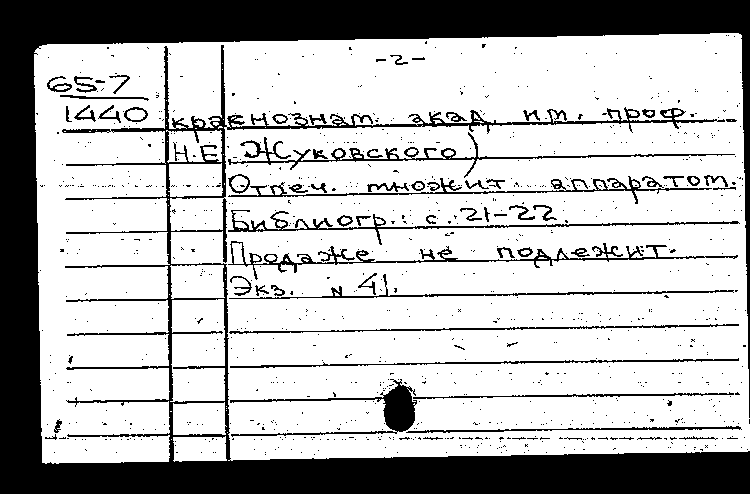 -2-
65-7
1440
краснознам. акад. им. проф.
Н.Е. Жуковского)
Отпеч. множит. аппаратом.
Библиогр.: с. 21-22.
Продаже не подлежит.
Экз. № 41.